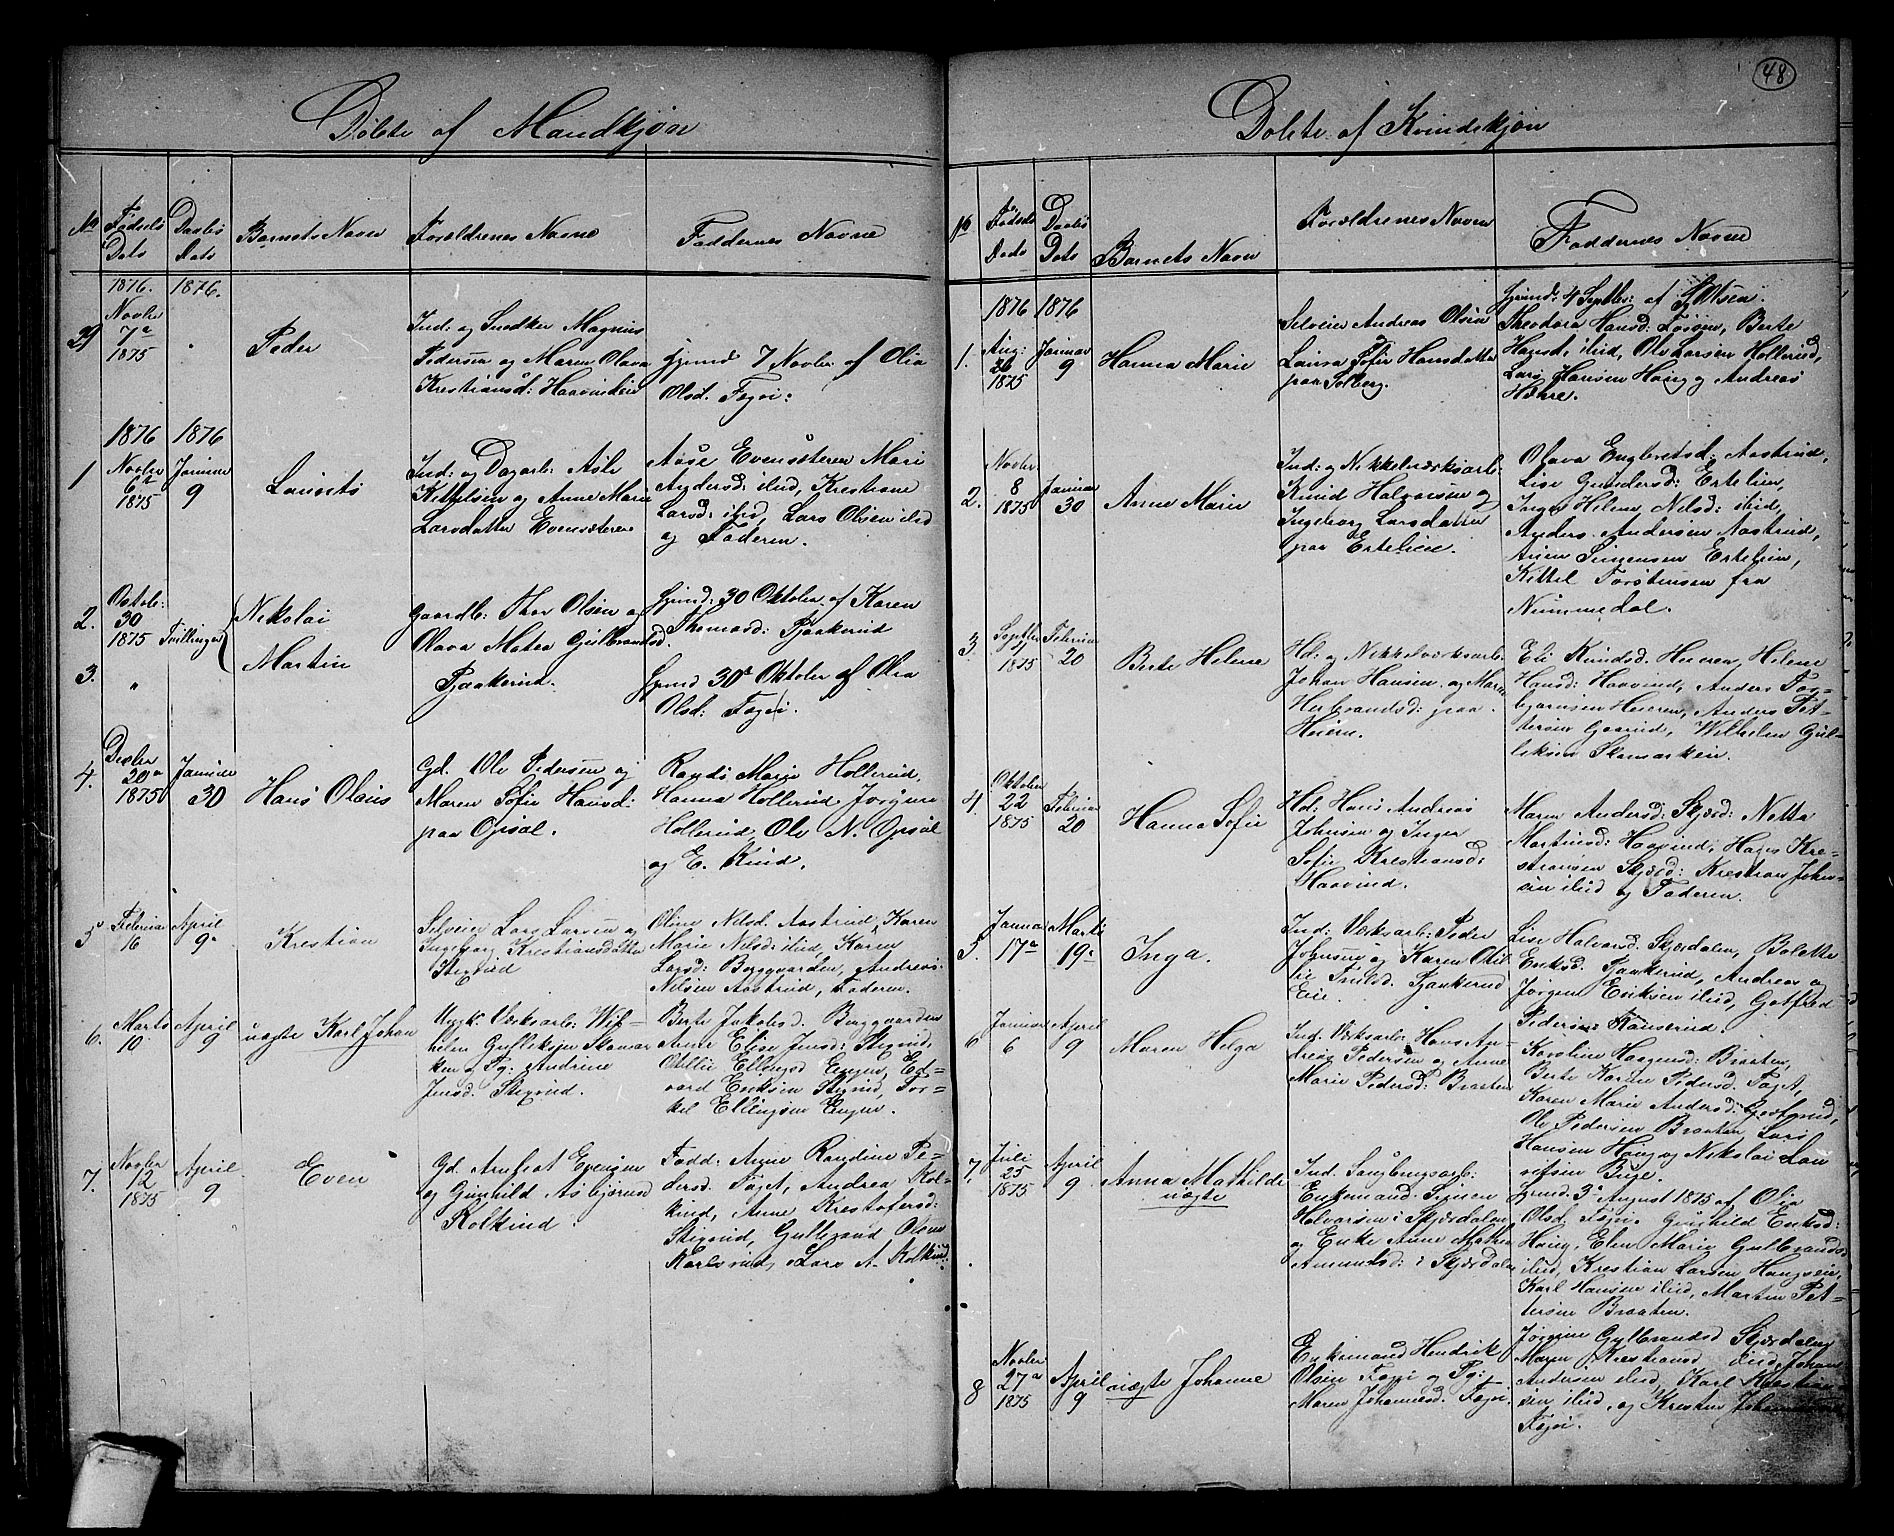 48
Døbte af Mandkjøn
No
Fødsels
Dato
Daabs
Dato
Barnets Navn
Forældrenes Navne
Faddernes Navne
1876. 1876.
29
Novbr
7de
1875
Peder
Ind: og Snedker Magnus
Pedersen og Maren Olava
Kristiansd: Haavindeie
Hjemd 7 Novbr. af Olia
Olsd. Fagei:
1876 1876
1
Novbr
6te
1875
Januar
9
Laurets
Ind: og Dagarb: Asle
Kittelsen og Anne Marie
Larsdatter Evensæteren
Aase Evensæteren Mari
Andersd: ibid, Krestiane
Larsd: ibid, Lars Olsen ibid
og Faderen.
2.
Octob:
30
1875
Tvillinger
Nikolai
Gaardb: Thor Olsen og
Olava Mater Gulbrandsd.
Hjemd: 30 Oktober af Karen
Thomasd: Pjaakerud
3.
"
Martin
Pjaakerud.
Hjemd 30te Oktober af Olia
Olsd: Fagei.
4.
Decbr
20de
1875
Januar
30
Hans Olaus
Gd. Ole Pedersen og
Maren Sofie Hansd:
paa Opsal.
Randi Marie Hollerud,
Hanna Hollerud Jorgine
Hollerud, Ole N. Opsal
og E. Rud.
5
Februar
16
April
9
Krestian
Selveier Lars Larsen og
Ingeborg Kristiansdatter
Stixrud
Oline Nilsd. Aastrud, Karen
Marie Nilsd: ibid, Karen
Larsd: Berggaarden, Andreas
Nilsen Aastrud, Faderen.
6.
Marts
10
April
9
uægte Karl Johan
Ugk. Værksarb: Wil-
helm Gulliksen Skamar
ken og Pg: Andrine
Jensd. Stixrud.
Berte Jakobsd. Berggaarden
Anne Elise Jensd: Stixrud,
Otillie Ellingsd Engen, Ed-
vard Eriksen Stixrud, Tor-
kel Ellingsen Engen.
7.
Novbr
12
1875
April
9
Even
Gd. Amfrat Evensen
og Gunhild Asbjørnsd
Kolkind.
Fadd: Anne Randine Pe-
dersd. Faget, Andrea Kol-
kind, Anne Krestofersd:
Stixrud, Gulbrand Olsen
Karlsrud, Lars A. Kolkind.
Døbte af Kvindekjøn
No
Fødsels
Dato
Daabs
Dato
Barnets Navn
Forældrenes Navn
Faddernes Navne
1876 1876
1.
Aug:
26
1875
Januar
9
Hanna Marie
Selveier Andreas Olsen
Laura Sofie Hansdatter
paa Solberg.
Hjemd: 4 Septbr: af Olsen.
Theodora Hansd: Fossen, Berte
Hansd, ibid, Ole Larsen Hollerud,
Lars Hansen Haug og Andreas
Hæhre.
2.
Novbr
8
1875
Januar
30
Anne Marie
Ind: og Nikkelværksarb:
Knud Halvorsen og
Ingeborg Larsdatter
paa Ertelien.
Olava Engbretsd: Aastrud,
Lise Gundersd: Ertelien,
Inger Helene Nilsd: ibid,
Anders Andersen Aastrud,
Ertelien,
Kittel Torstensen fra
Nummedal.
3.
Septbr
11
1875
Februar
20
Berte Helene
Hd: og Nikkelværksarb:
Johan Hansen og Maren
Herbrandsd: paa
Heiern.
Eli Knudsd: Heieren, Helene
Hansd: Haavind, Anders Tor-
bjørnsen Heieren, Anders Pet-
tersen Gaarud, Wilhelm Gul-
liksen Skamarken.
4.
Oktober
22
1875
Februar
20
Hanna Sofie
Hd: Hans Andreas
Johnsen og Inger
Sofie Krestiansd:
Haavind.
Maren Andersd: Skjæd: Netta
Martinsd: Haavind, Hans Kre-
stiansen Skjæd: Krestian John-
sen ibid og Faderen.
5.
Januar
17de
Marts
19
Inga.
Ind: Værksarb: Peder
Johnsen og Karen Otil-
lie Truls. Pjaakerud
Eie.
Lise Halvorsd: Skjærdalen, Bolette
Eriksd. Pjaakerud, Andreas og
Jørgen Eriksen ibid, Gotfred
Pedersen Kanserud.
6
Januar
6
April
9
Maren Helga
Ind: Værksarb: Hans An-
dreas Pedersen og Anne
Marie Pedersd: Braaten
Karoline Haagensd: Braaten,
Berte Karen Pedersd. Faget,
Karen Marie Andersd:
Ole Pedersen Braaten Lars
Hansen Haug og Nikolai Lau
ritsen Buge.
7.
Juli
25
1875
April
9
Anna Mathilde
uægte
Ind. Sagbrugsarb:
Enkemand Simen
Halvorsen i Skjærdalen
og Enke Anne Mathea
Amundsd: i Skjærdalen
Hjemd. 3de August 1875 af Olia
Olsd. Fagei. Gunhild Eriksd:
Haug, Elen Marie Gulbrandsd
ibid, Krestian Larsen Haugseie,
Karl Hansen ibid, Martin Pet-
tersen Braaten.
8
Novbr
27de
1875
April
9
uægte Johanne
Enkemand Hendrik
Olsen Fagei og Pg:
Maren Johannesd. Fagei.
Jørgine Gulbrandsd Skjærdalen
Maren Krestiansd ibid, Johan
Andersen ibid, Karl Kresti
sen ibid, og Kresten
Fagei.